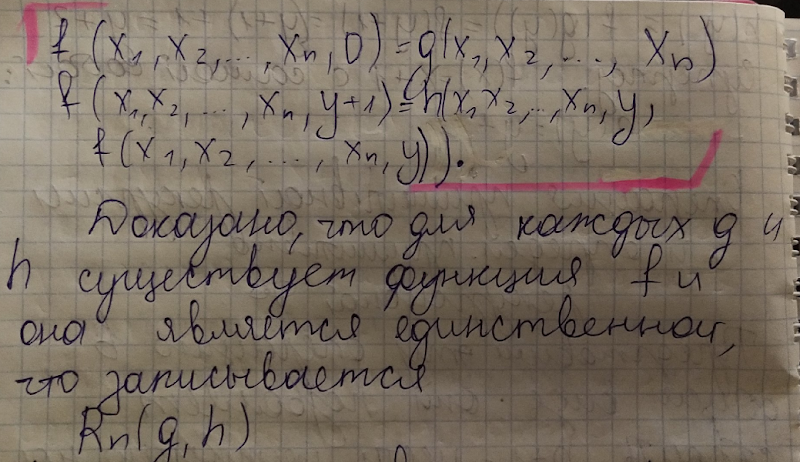 f(x₁, x₂, ..., xₙ, 0) = g(x₁, x₂, ..., xₙ)
f(x₁, x₂, ..., xₙ, y+1) = h(x₁, x₂, ..., xₙ, y,
f(x₁, x₂, ..., xₙ, y)).
Доказано, что для каждых g и
h существует функция f и
она является единственной,
что записывается
Rₙ(g, h)